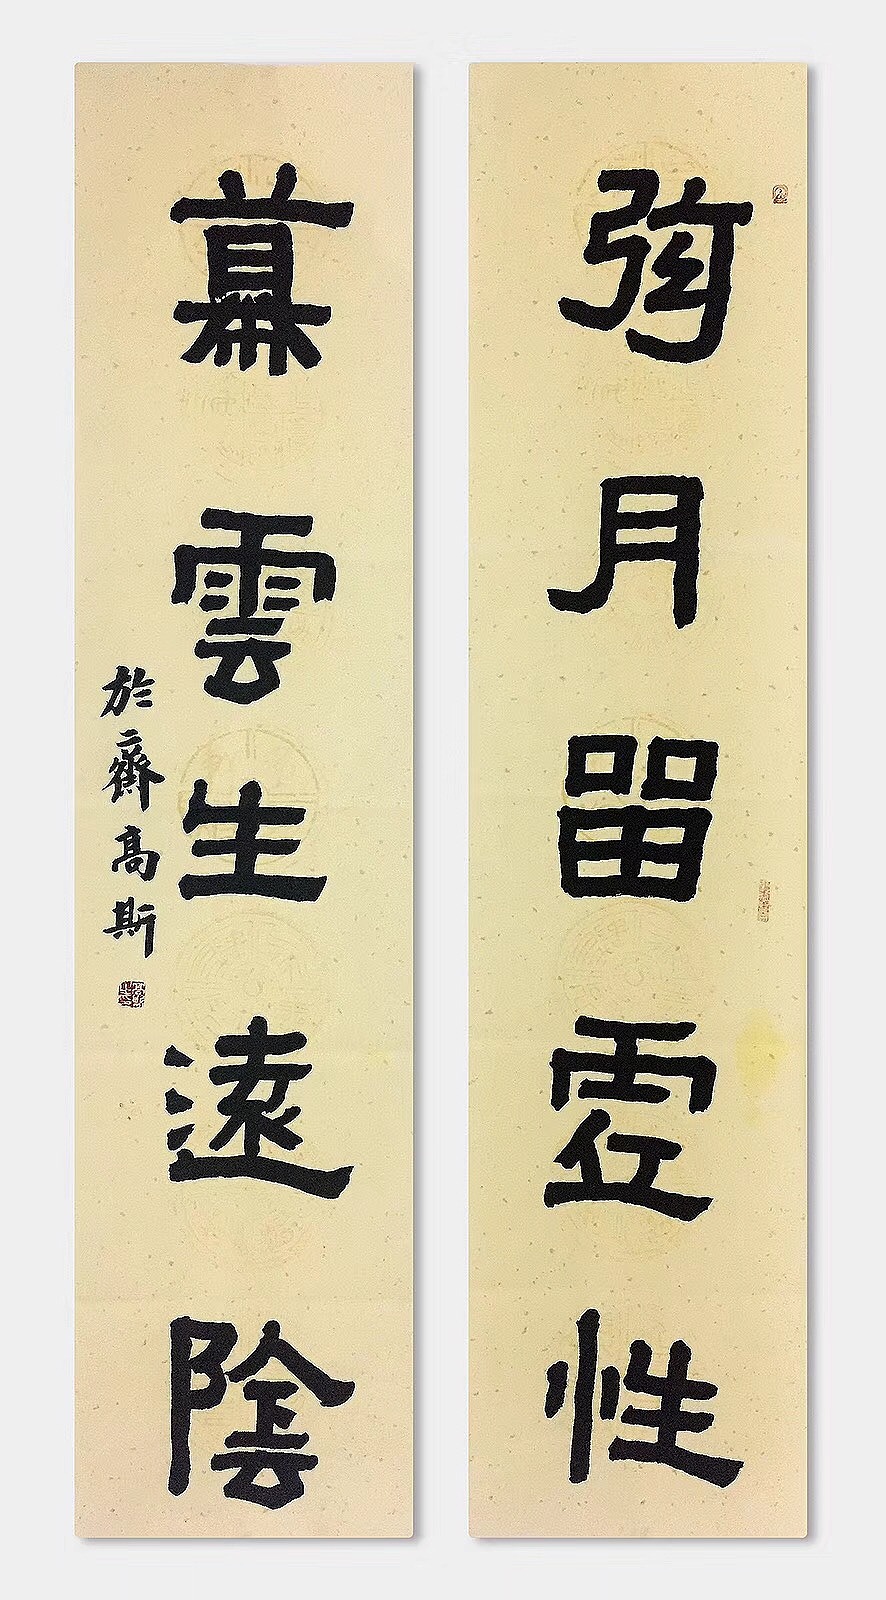 弦月留虚性
幕雲生遠陰
於齋高斯